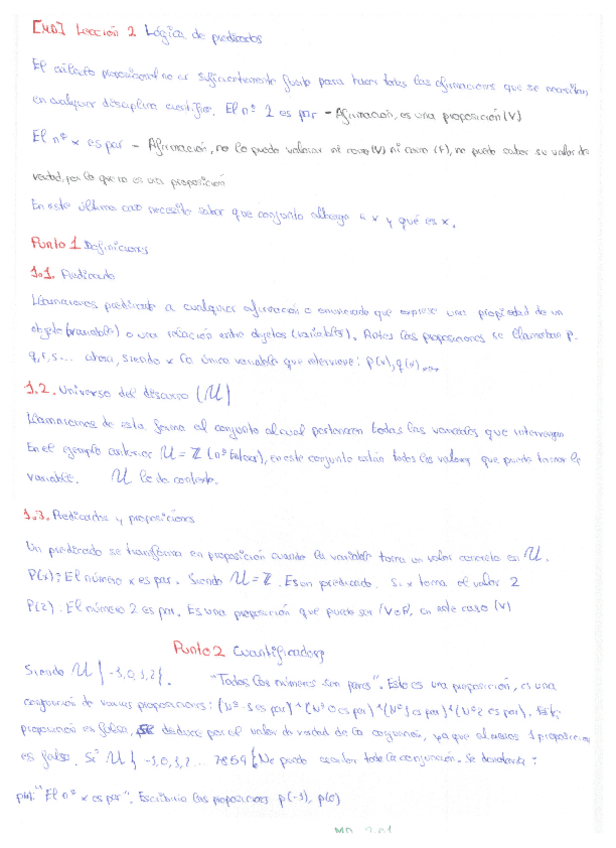 [MD] Lección 2 Lógica de predicados
El cálculo proposicional no es suficientemente fuerte para hacer todas las afirmaciones que se necesitan
en cualquier disciplina científica. El nº 2 es par - Afirmación, es una proposición (V)
El nº x es par - Afirmación, no lo puedo valorar ni como (V) ni como (F), no puedo saber su valor de
verdad, por lo que no es una proposición
En este último caso necesito saber que conjunto alberga a x y qué es x.
Punto 1 Definiciones
1.1. Predicado
Llamaremos predicado a cualquier afirmación o enunciado que exprese una propiedad de un
objeto (variable) o una relación entre objetos (variables). Antes las proposiciones se llamaban p,
q, r, s... ahora, siendo x la única variable que interviene: p(x), q(x)...
1.2. Universo del discurso (U)
Llamaremos de esta forma al conjunto al cual pertenecen todas las variables que intervengan
En el ejemplo anterior U = Z (nº Enteros), en este conjunto están todos los valores que puede tomar la
variable. U le da contexto.
1.3. Predicados y proposiciones
Un predicado se transforma en proposición cuando la variable toma un valor concreto en U.
P(x): El número x es par. Siendo U = Z. Es un predicado. Si x toma el valor 2
P(2). El número 2 es par. Es una proposición que puede ser V o F, en este caso (V)
Punto 2 Cuantificadores
Siendo U { -3, 0, 3, 2 }. "Todos los números son pares". Esto es una proposición, es una
conjunción de varias proposiciones: (Nº -3 es par) ^ (Nº 0 es par) ^ (Nº 3 es par) ^ (Nº 2 es par). Esta
proposición es falsa, se deduce por el valor de verdad de la conjunción, ya que al menos 1 proposición
es falsa. Si U { -3, 0, 3, 2 ... 7859 } No puedo escribir toda la conjunción. Se denotaría:
p(x): "El nº x es par". Escribiría las proposiciones p(-3), p(0)